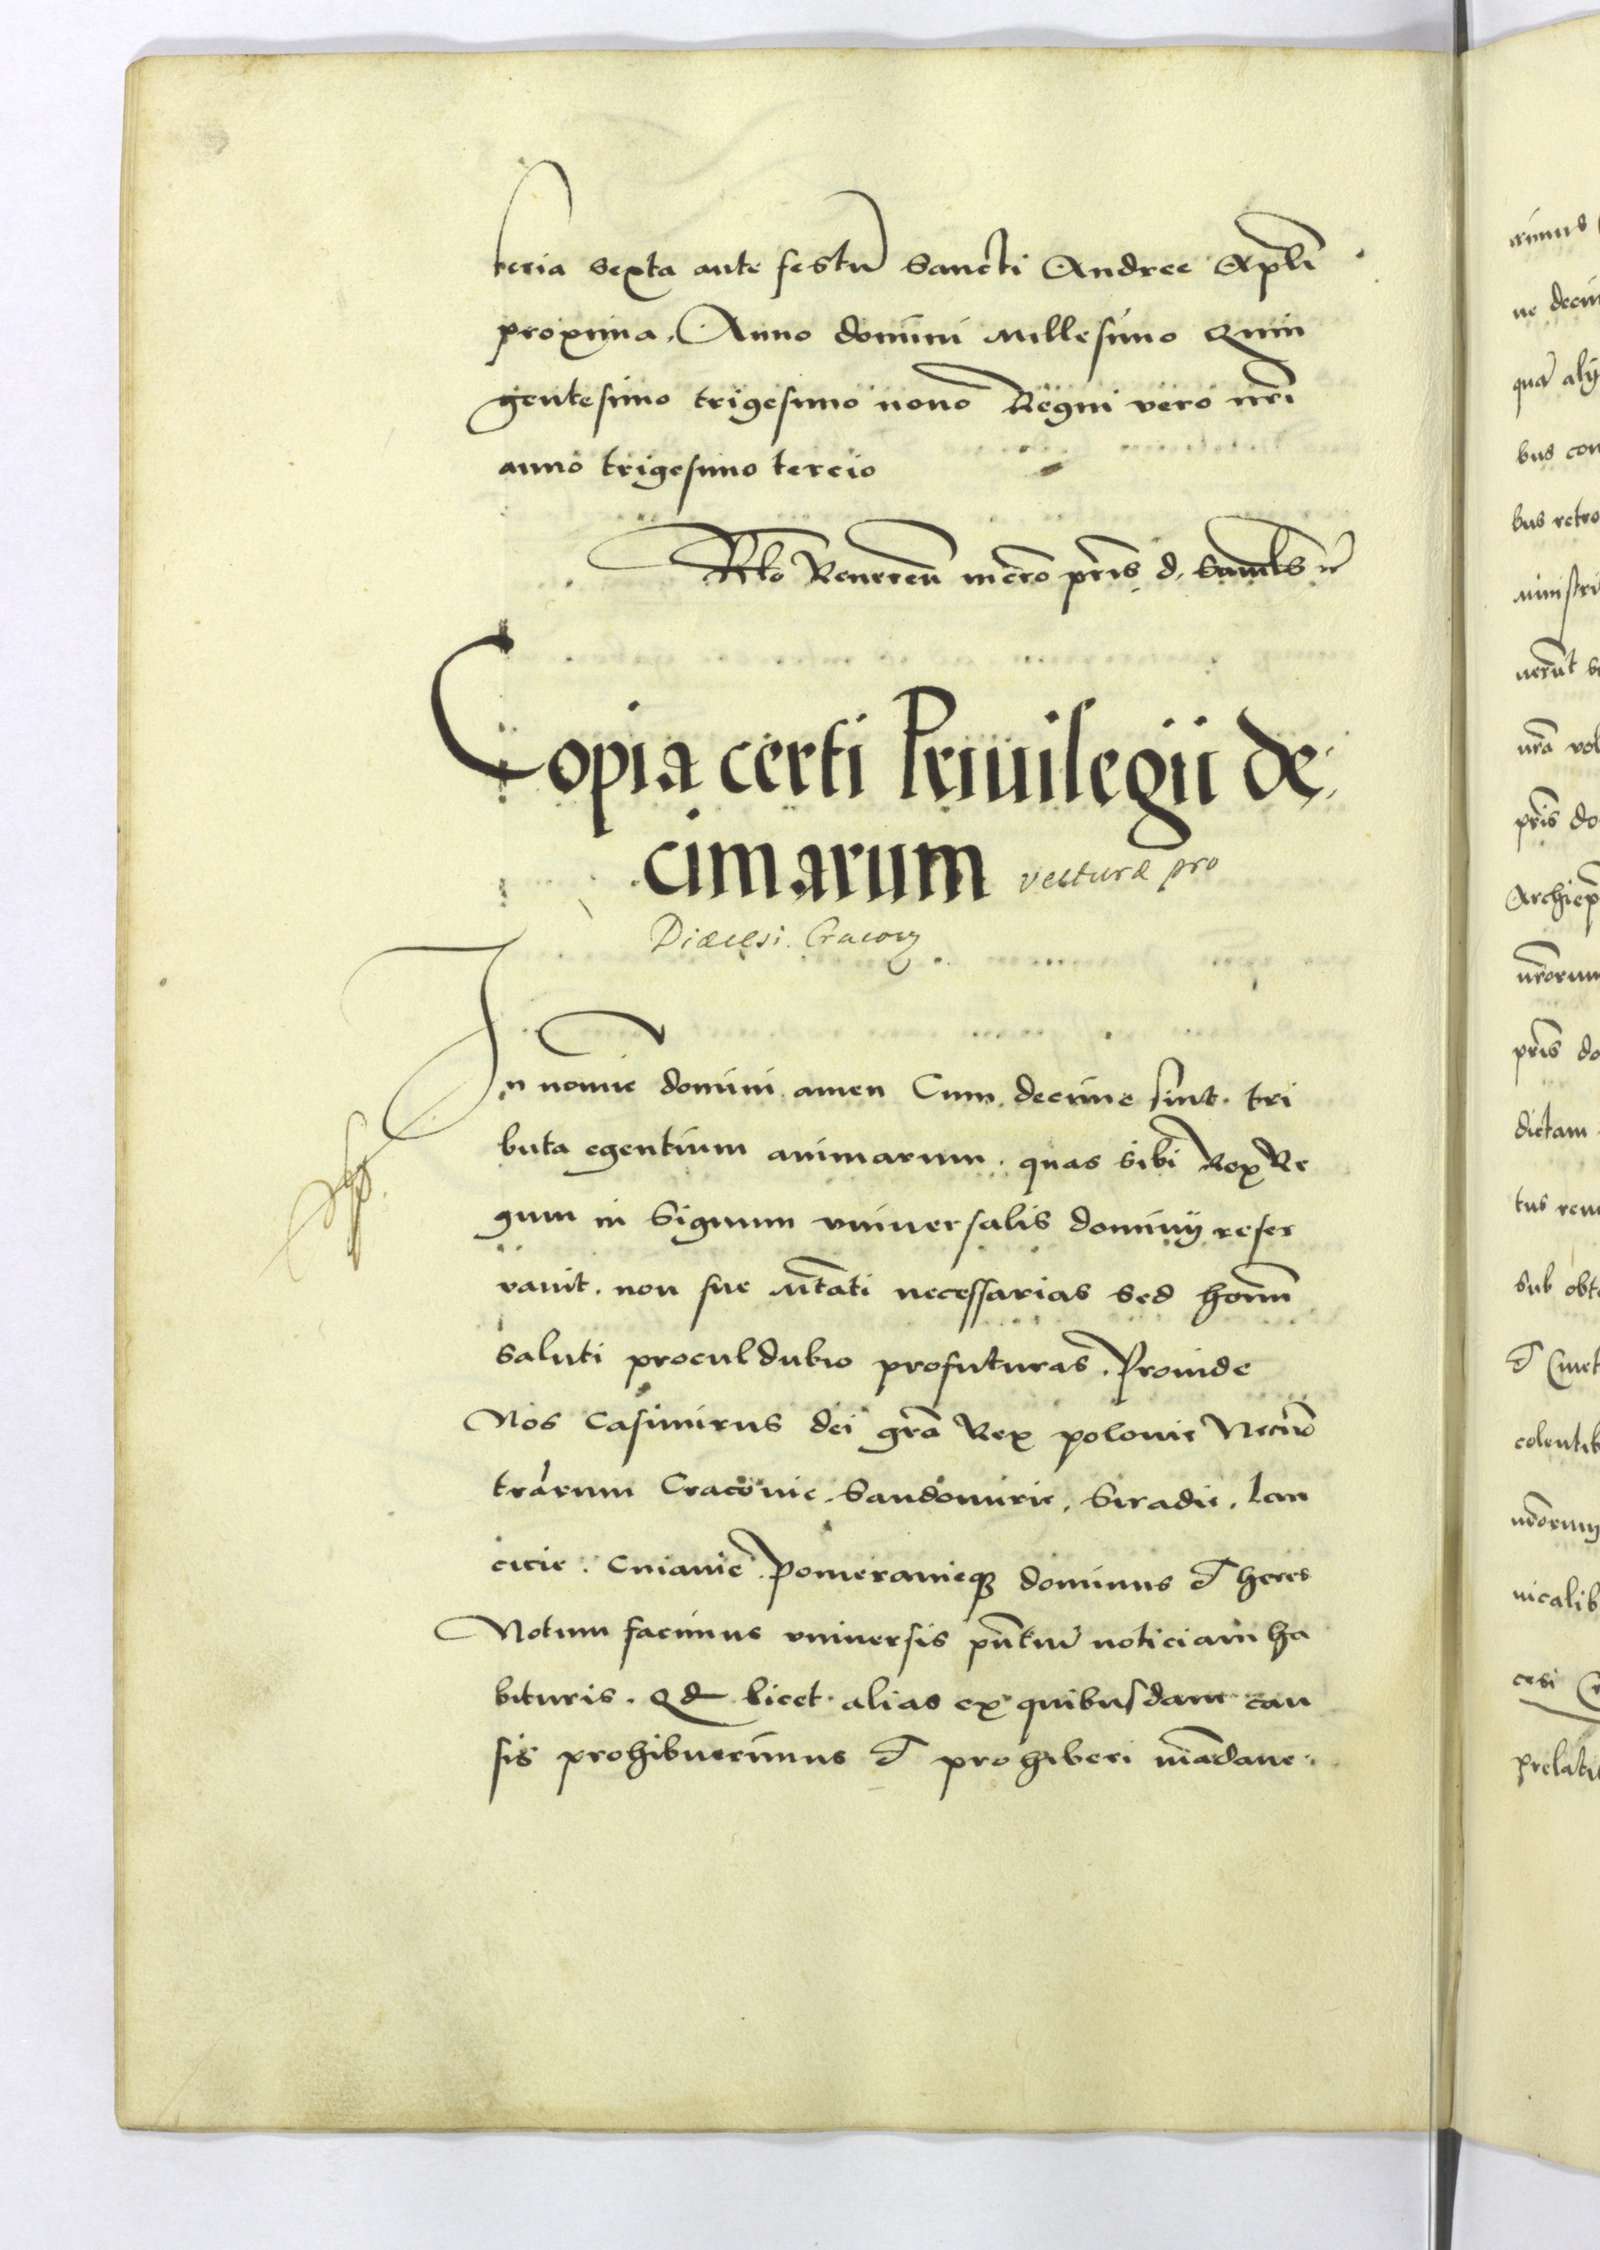 feria sexta ante festu Sancti Andree Apli
proxima. Anno domini Millesimo Quin
gentesimo trigesimo nono Regni vero nri
anno trigesimo tercio
Rlo Reneren
Copia certi Priuilegii de,
cimarum vecturæ pro
Diæcesi. Cracoŭ
In nomie domini amen Cum decime sint. tri
buta egentium animarum. quas sibi Rex Re
gum in Signum vniuersalis dominij reser
vauit. non sue Mtati necessarias sed homn
saluti procul dubio profuturas. Proinde
Nos Casimirus dei gra Rex polonie Necno
trarum Cracouie. Sandomirie. Siradie. Lan
cicie. Cuiauie. Pomeranieq dominus et heres
Notum facimus vniuersis pntiu noticiam ha
bituris. Qd licet alias ex quibusdam cau
sis prohibuerimus et prohiberi madaue.
rimus
ne decim
qua alij
bus con
bus retro
ministri
nra vol
pris do
Archiep
nrorum
pris do
dictam
tus
sub obt
et Cmet
colentib
nrorum
nicalib
cesi
prelati